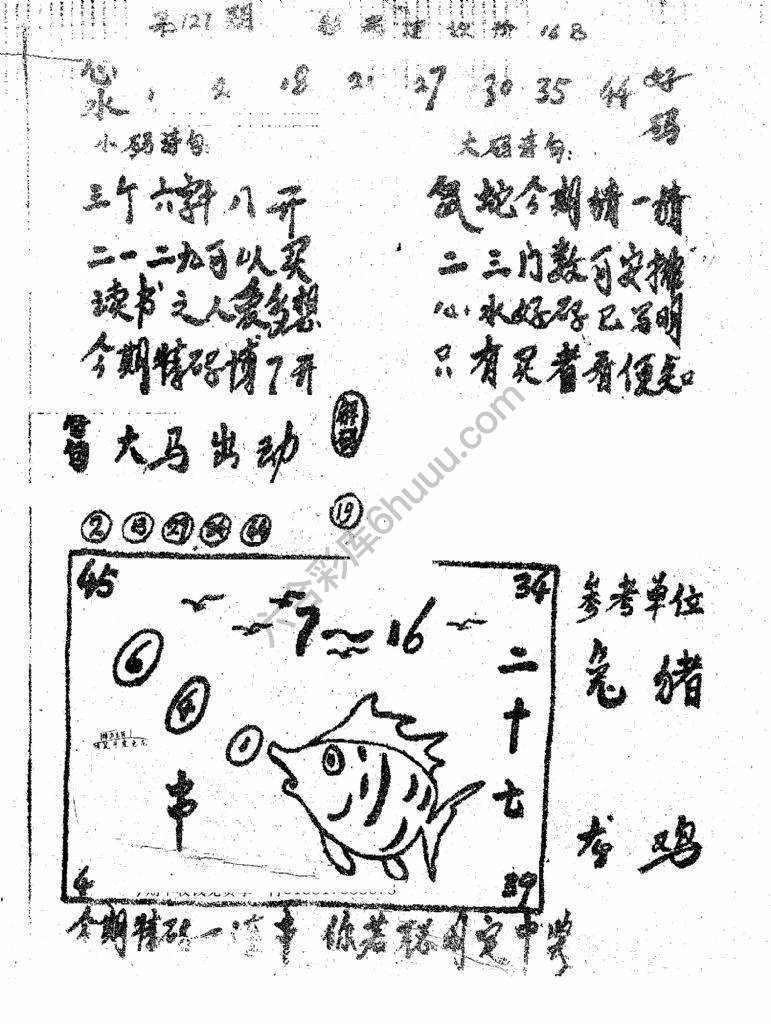 第127期 16B
心水 2 18 27 30 35 44 好码
小码诗句:
大码诗句:
三个六字斗八开
二一二九可以买
读书之人爱多想
今期特码博了开
鼠蛇今期猜一猜
二三门数可安排
心水好码已写明
只有买者看便知
大马出动
解码
2 13 27
19
45 34
7~16
6
4
1
二十七
串
4 39
参考单位
兔 猪
龙 鸡
今期特码一 串 你若 中奖
六合彩库6huuu.com